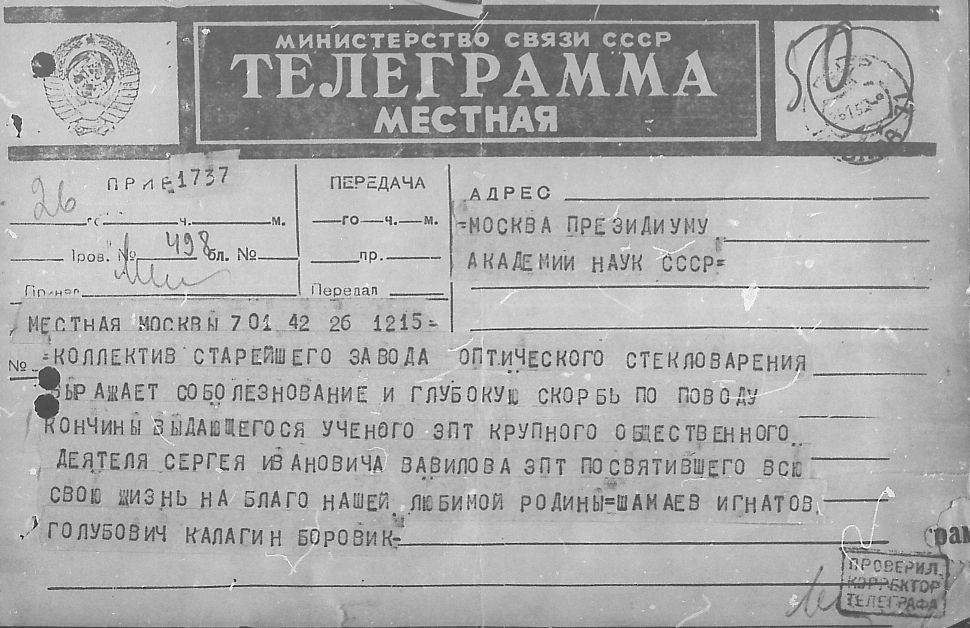 МИНИСТЕРСТВО СВЯЗИ СССР
ТЕЛЕГРАММА
МЕСТНАЯ
50
ПРИЕ 1737
26
го ч. м.
Пров. № 498 бл. №
ПЕРЕДАЧА
го ч. м.
пр.
Передал
АДРЕС
=МОСКВА ПРЕЗИДИУМУ
АКАДЕМИИ НАУК СССР=
МЕСТНАЯ МОСКВЫ 701 42 26 1215=
№ =КОЛЛЕКТИВ СТАРЕЙШЕГО ЗАВОДА ОПТИЧЕСКОГО СТЕКЛОВАРЕНИЯ
ВЫРАЖАЕТ СОБОЛЕЗНОВАНИЕ И ГЛУБОКУЮ СКОРБЬ ПО ПОВОДУ
КОНЧИНЫ ВЫДАЮЩЕГОСЯ УЧЕНОГО ЗПТ КРУПНОГО ОБЩЕСТВЕННОГО
ДЕЯТЕЛЯ СЕРГЕЯ ИВАНОВИЧА ВАВИЛОВА ЗПТ ПОСВЯТИВШЕГО ВСЮ
СВОЮ ЖИЗНЬ НА БЛАГО НАШЕЙ ЛЮБИМОЙ РОДИНЫ=ШАМАЕВ ИГНАТОВ
ГОЛУБОВИЧ КАЛАГИН БОРОВИК=
рам
ПРОВЕРИЛ
КОРРЕКТОР
ТЕЛЕГРАФА